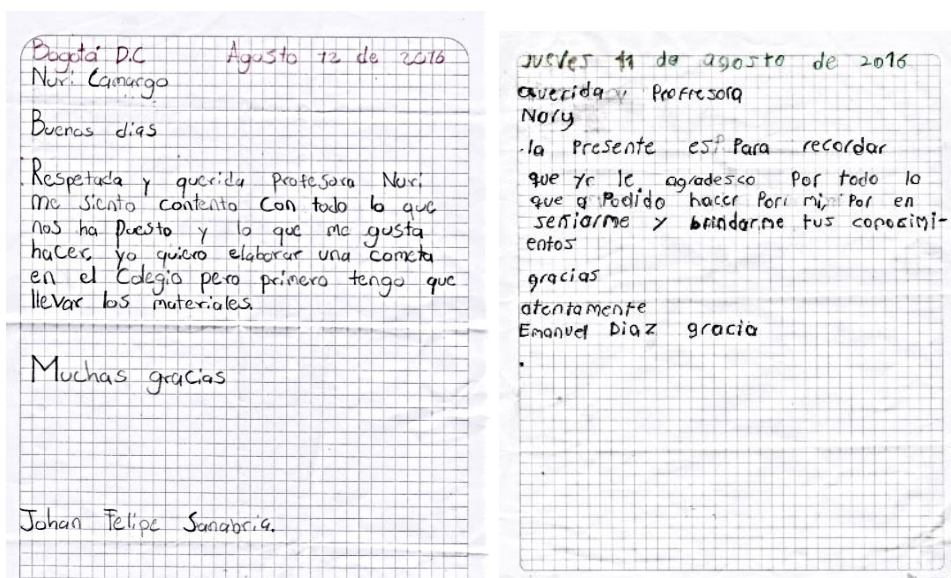 Bogotá D.C Agosto 12 de 2016
Nuri Camargo
Buenos dias
Respetada y querida Profesora Nuri
me siento contento con todo lo que
nos ha Puesto y lo que me gusta
hacer, yo quiero elaborar una cometa
en el Colegio pero primero tengo que
llevar los materiales.
Muchas gracias
Johan Felipe Sanabria.
jueves 11 de agosto de 2016
querida Proffesora
Nory
la Presente es Para recordar
que yo le agradesco Por todo lo
que a Podido hacer Por mi, Por en
señarme y brindarme tus conosimi-
entos
gracias
atentamente
Emanuel Diaz gracia